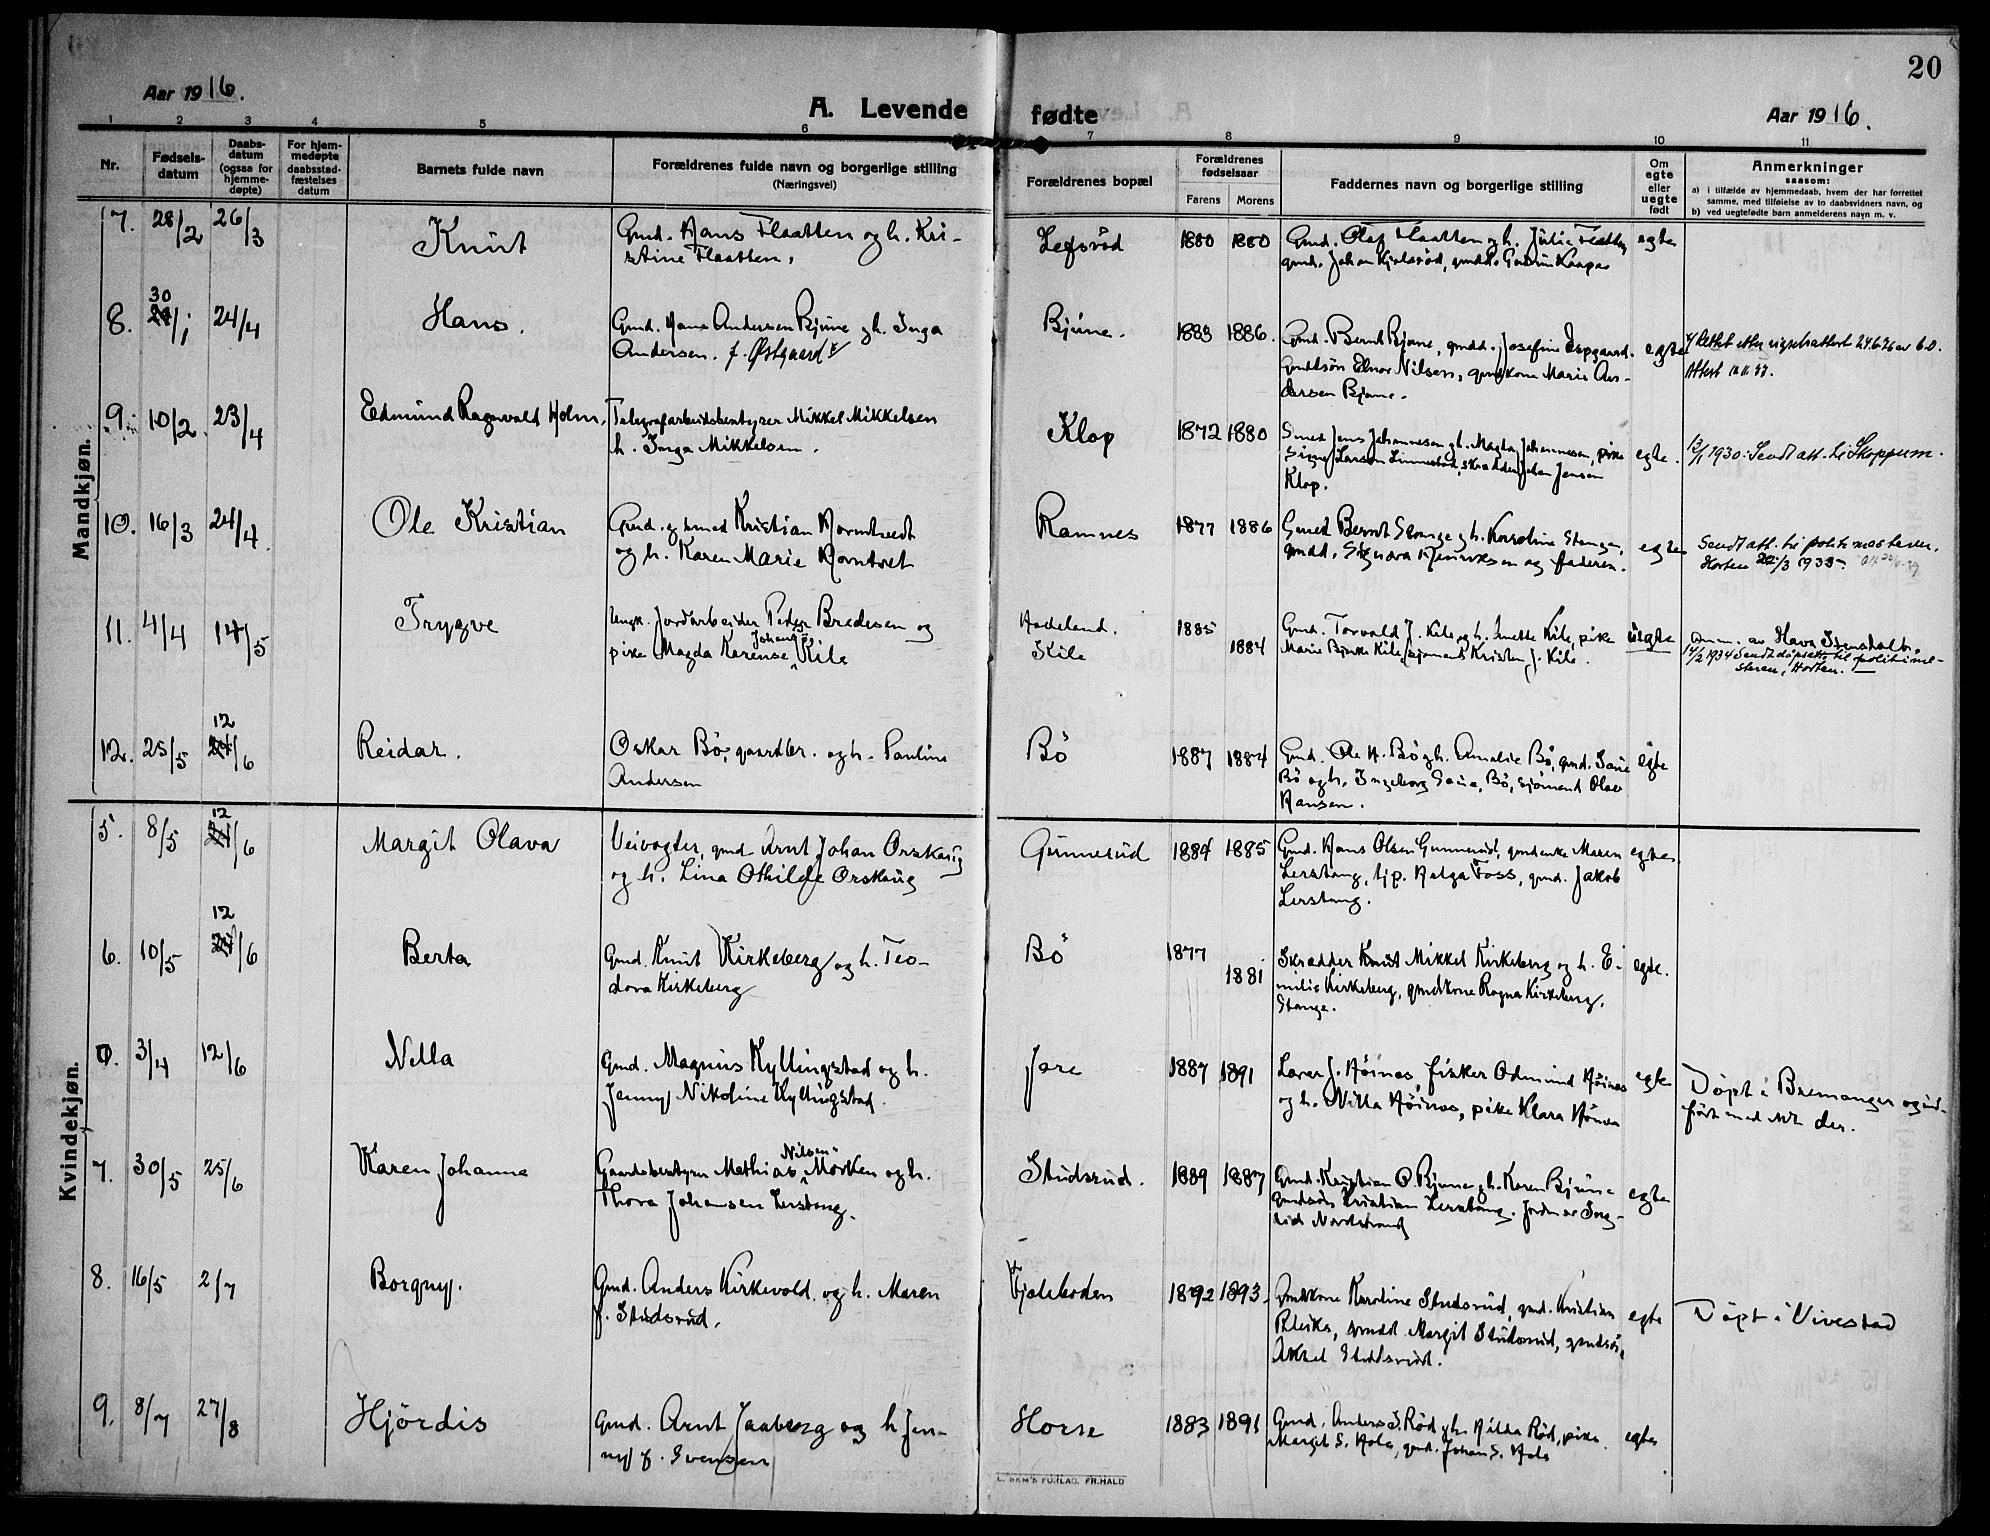 20
Aar 1916.
A. Levende fødte
Aar 1916.
1 2 3 4 5 6 7 8 9 10 11
Nr.
Fødsels-
datum
Daabs-
datum
(ogsaa for
hjemme-
døpte)
For hjem-
medøpte
daabsstad-
fæstelses
datum
Barnets fulde navn
Forældrenes fulde navn og borgerlige stilling
(Næringsvei)
Forældrenes bopæl
Forældrenes
fødselsaar
Farens Morens
Faddernes navn og borgerlige stilling
Om
egte
eller
uegte
født
Anmerkninger
saasom:
a) i tilfælde av hjemmedaab, hvem der har forrettet
samme, med tilføielse av to daabsvidners navn, og
b) ved uegtefødte barn anmelderens navn m. v.
Mandkjøn.
7. 28/2 26/3 Knut
Gmd. Hans Flaatten og h. Kri-
stine Flaatten.
Lefsrød 1880 1880
Gmd. Olaf Flaatten og h. Julie Flaatten
gmd. Johan
egte
8. 30 24/1 24/4 Hans.
Gmd. Hans Andersen Bjune og h. Inga
Andersen. f. Østgaard
Bjune. 1883 1886.
Gmd. Bernt Bjune, gmdd. Josefine
Gmdsøn Nilsen, gmdkone Marie An-
dersen Bjune.
egte
Rettet etter
Attest
9. 10/2 23/4 Edmund Ragnvald Holm.
Telegrafarbeidsbestyrer Mikkel Mikkelsen
h. Inga Mikkelsen.
Klop 1872 1880
Smed Jens Johannesen og h. Magda Johannesen, pike
Signe Larsen Linnestad, skrædder Johan Jensen
Klop.
egte.
1930. Sendt att. til Skoppum.
10. 16/3 24/4 Ole Kristian
Gmd. og smed Kristian Horntvedt
og h. Karen Marie Horntvet
Ramnes 1877 1886
Smed Bernt Stange og h. Karoline Stange,
gmdd. Signora Henriksen og faderen.
egte
Sendt att. til politimesteren,
Horten 22/3 1935
11. 4/4 14/5 Trygve
Ungk. Jordarbeider Peder Bredesen og
pike Magda Karense Kile
Hadeland.
Kile
1885 1884
Gmd. Torvald J. Kile og h. Anette Kile, pike
Marie Bjerke Kile, sjømand Kristen J. Kile.
uegte
Anm. av
1934 Sendt dåpsatt. til politime-
steren, Horten.
12. 25/5 12 24/6 Reidar.
Oskar Bö, gaardbr. og h. Pauline
Andersen
Bö 1887 1884
Gmd. Ole H. Bö og h. Amalie Bö, gmd.
Bö og h. Ingeborg Bö, sjömand Olav
Hansen.
egte
Kvindekjøn.
5. 8/5 12 24/6 Margit Olava
Veivogter, gmd Arnt Johan Orskaug
og h. Lina Othilde Orskaug
Gunnerud 1884 1885
Gmd. Hans Olsen Gunnerud, gmdenke Maren
Lerstang, tjp. Helga Foss, gmd. Jakob
Lerstang.
egte
6. 10/5 12 24/6 Berta
Gmd. Knut Kirkeberg og h. Teo-
dora Kirkeberg
Bö 1877 1881
Skrædder Mikkel Kirkeberg og h. E-
milie Kirkeberg, gmdkone Ragna Kirkeberg,
Stange.
egte.
0. 3/4 12/6 Nella
Gmd. Magnus Kyllingstad og h.
Jenny Nikoline Kyllingstad.
Jare 1887 1891
Lærer J. Höines, fisker Odmund Höines
og h. Nilla Höines, pike Klara Höines
egte
Döpt i Bremanger og ind-
fört med nr. der.
7. 30/5 25/6 Karen Johanna
Gaardsbestyrer Mathias Nilsen Morken og h.
Thora Johansen Lerstang.
Studsrud. 1889 1887
Gmd. Kristian O. Bjune og h. Karen Bjune
gmdsön Kristian Lerstang. Jordmor Ing-
rid Nordstrand
egte
8. 16/5 2/7 Borgny.
Gmd. Anders Kirkevold og h. Maren
f. Studsrud.
Fjeleboden 1892 1893.
Gmdkone Karoline Studsrud, gmd. Kristian
gmdd. Margit Studsrud, gmdsön
Aksel Studsrud.
egte
Döpt i Vivestad
9. 8/7 27/8 Hjördis
Gmd. Arnt Jaaberg og h. Jen-
ny f. Svensen
Horse 1883 1891
Gmd. Anders S. Röd og h. Hilda Röd, pike
Margit S. Hole, gmd. Johan S. Hole
egte
E. SEM'S FORLAG. FR.HALD